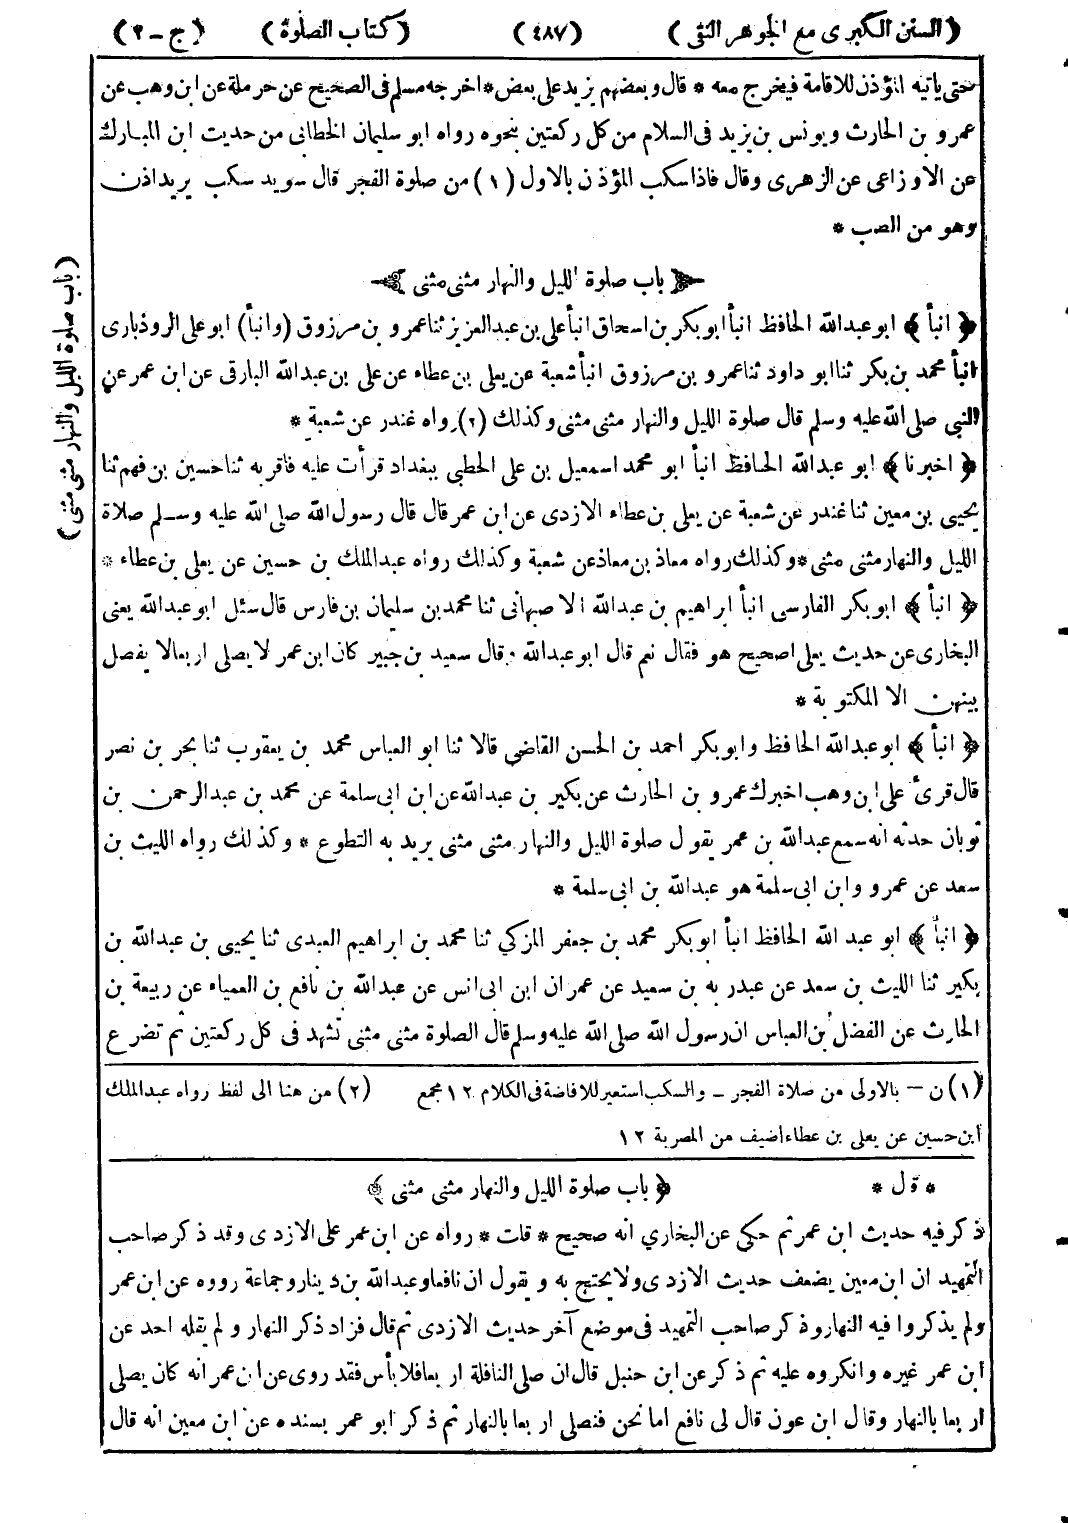 (السنن الكبرى مع الجوهر النقى) (٤٨٧) (كتاب الصلوة) (ج - ٢)
حتى ياتيه المؤذن للاقامة فيخرج معه * قال وبعضهم يزيد على بعض * اخرجه مسلم فى الصحيح عن حرملة عن ابن وهب عن
عمرو بن الحارث ويونس بن يزيد فى السلام من كل ركعتين بنحوه رواه ابو سليمان الخطابى من حديث ابن المبارك
عن الاوزاعى عن الزهرى وقال فاذا سكب المؤذن بالاول (١) من صلوة الفجر قال سويد سكب يريد اذن
وهو من الصب *
باب صلوة الليل والنهار مثنى مثنى
(باب صلوة الليل والنهار مثنى مثنى)
﴿ انبأ ﴾ ابو عبدالله الحافظ انبأ ابوبكر بن اسحاق انبأ على بن عبدالعزيز ثنا عمرو بن مرزوق (وانبأ) ابو على الروذبارى
انبأ محمد بن بكر ثنا ابو داود ثنا عمرو بن مرزوق انبأ شعبة عن يعلى بن عطاء عن على بن عبدالله البارقى عن ابن عمر عن
النبى صلى الله عليه وسلم قال صلوة الليل والنهار مثنى مثنى وكذلك (٢) رواه غندر عن شعبة *
﴿ اخبرنا ﴾ ابو عبد الله الحافظ انبأ ابو محمد اسمعيل بن على الخطبى ببغداد قرأت عليه فاقربه ثنا حسين بن فهم ثنا
يحيى بن معين ثنا غندر عن شعبة عن يعلى بن عطاء الازدى عن ابن عمر قال قال رسول الله صلى الله عليه وسلم صلاة
الليل والنهار مثنى مثنى * وكذلك رواه معاذ بن معاذ عن شعبة وكذلك رواه عبدالملك بن حسين عن يعلى بن عطاء *
﴿ انبأ ﴾ ابوبكر الفارسى انبأ ابراهيم بن عبدالله الاصبهانى ثنا محمد بن سليمان بن فارس قال سئل ابو عبدالله يعنى
البخارى عن حديث يعلى اصحيح هو فقال نعم قال ابو عبدالله وقال سعيد بن جبير كان ابن عمر لا يصلى اربعا لا يفصل
بينهن الا المكتوبة *
﴿ انبأ ﴾ ابو عبدالله الحافظ وابوبكر احمد بن الحسن القاضى قالا ثنا ابو العباس محمد بن يعقوب ثنا بحر بن نصر
قال قرئ على ابن وهب اخبرك عمرو بن الحارث عن بكير بن عبدالله عن ابن ابى سلمة عن محمد بن عبدالرحمن بن
ثوبان حدثه انه سمع عبدالله بن عمر يقول صلوة الليل والنهار مثنى مثنى يريد به التطوع * وكذلك رواه الليث بن
سعد عن عمرو وابن ابى سلمة هو عبدالله بن ابى سلمة *
﴿ انبأ ﴾ ابو عبد الله الحافظ انبأ ابوبكر محمد بن جعفر المزكي ثنا محمد بن ابراهيم العبدى ثنا يحيى بن عبدالله بن
بكير ثنا الليث بن سعد عن عبدربه بن سعيد عن عمران ابن ابى انس عن عبدالله بن نافع بن العمياء عن ربيعة بن
الحارث عن الفضل بن العباس ان رسول الله صلى الله عليه وسلم قال الصلوة مثنى مثنى تشهد فى كل ركعتين ثم تضرع
(١) ن - بالاولى من صلاة الفجر - والسكب استعير للافاضة فى الكلام ١٢ مجمع (٢) من هنا الى لفظ رواه عبدالملك
ابن حسين عن يعلى بن عطاء اضيف من المصرية ١٢
* قول * ﴿ باب صلوة الليل والنهار مثنى مثنى ﴾
ذكر فيه حديث ابن عمر ثم حكى عن البخاري انه صحيح * قلت * رواه عن ابن عمر على الازدى وقد ذكر صاحب
التمهيد ان ابن معين يضعف حديث الازدى ولا يحتج به ويقول ان نافعا وعبدالله بن دينار وجماعة رووه عن ابن عمر
ولم يذكروا فيه النهار وذكر صاحب التمهيد فى موضع آخر حديث الازدى ثم قال فزاد ذكر النهار ولم يقله احد عن
ابن عمر غيره وانكروه عليه ثم ذكر عن ابن حنبل قال ان صلى النافلة اربعا فلا بأس فقد روى عن ابن عمر انه كان يصلى
اربعا بالنهار وقال ابن عون قال لى نافع اما نحن فنصلى اربعا بالنهار ثم ذكر ابو عمر بسنده عن ابن معين انه قال